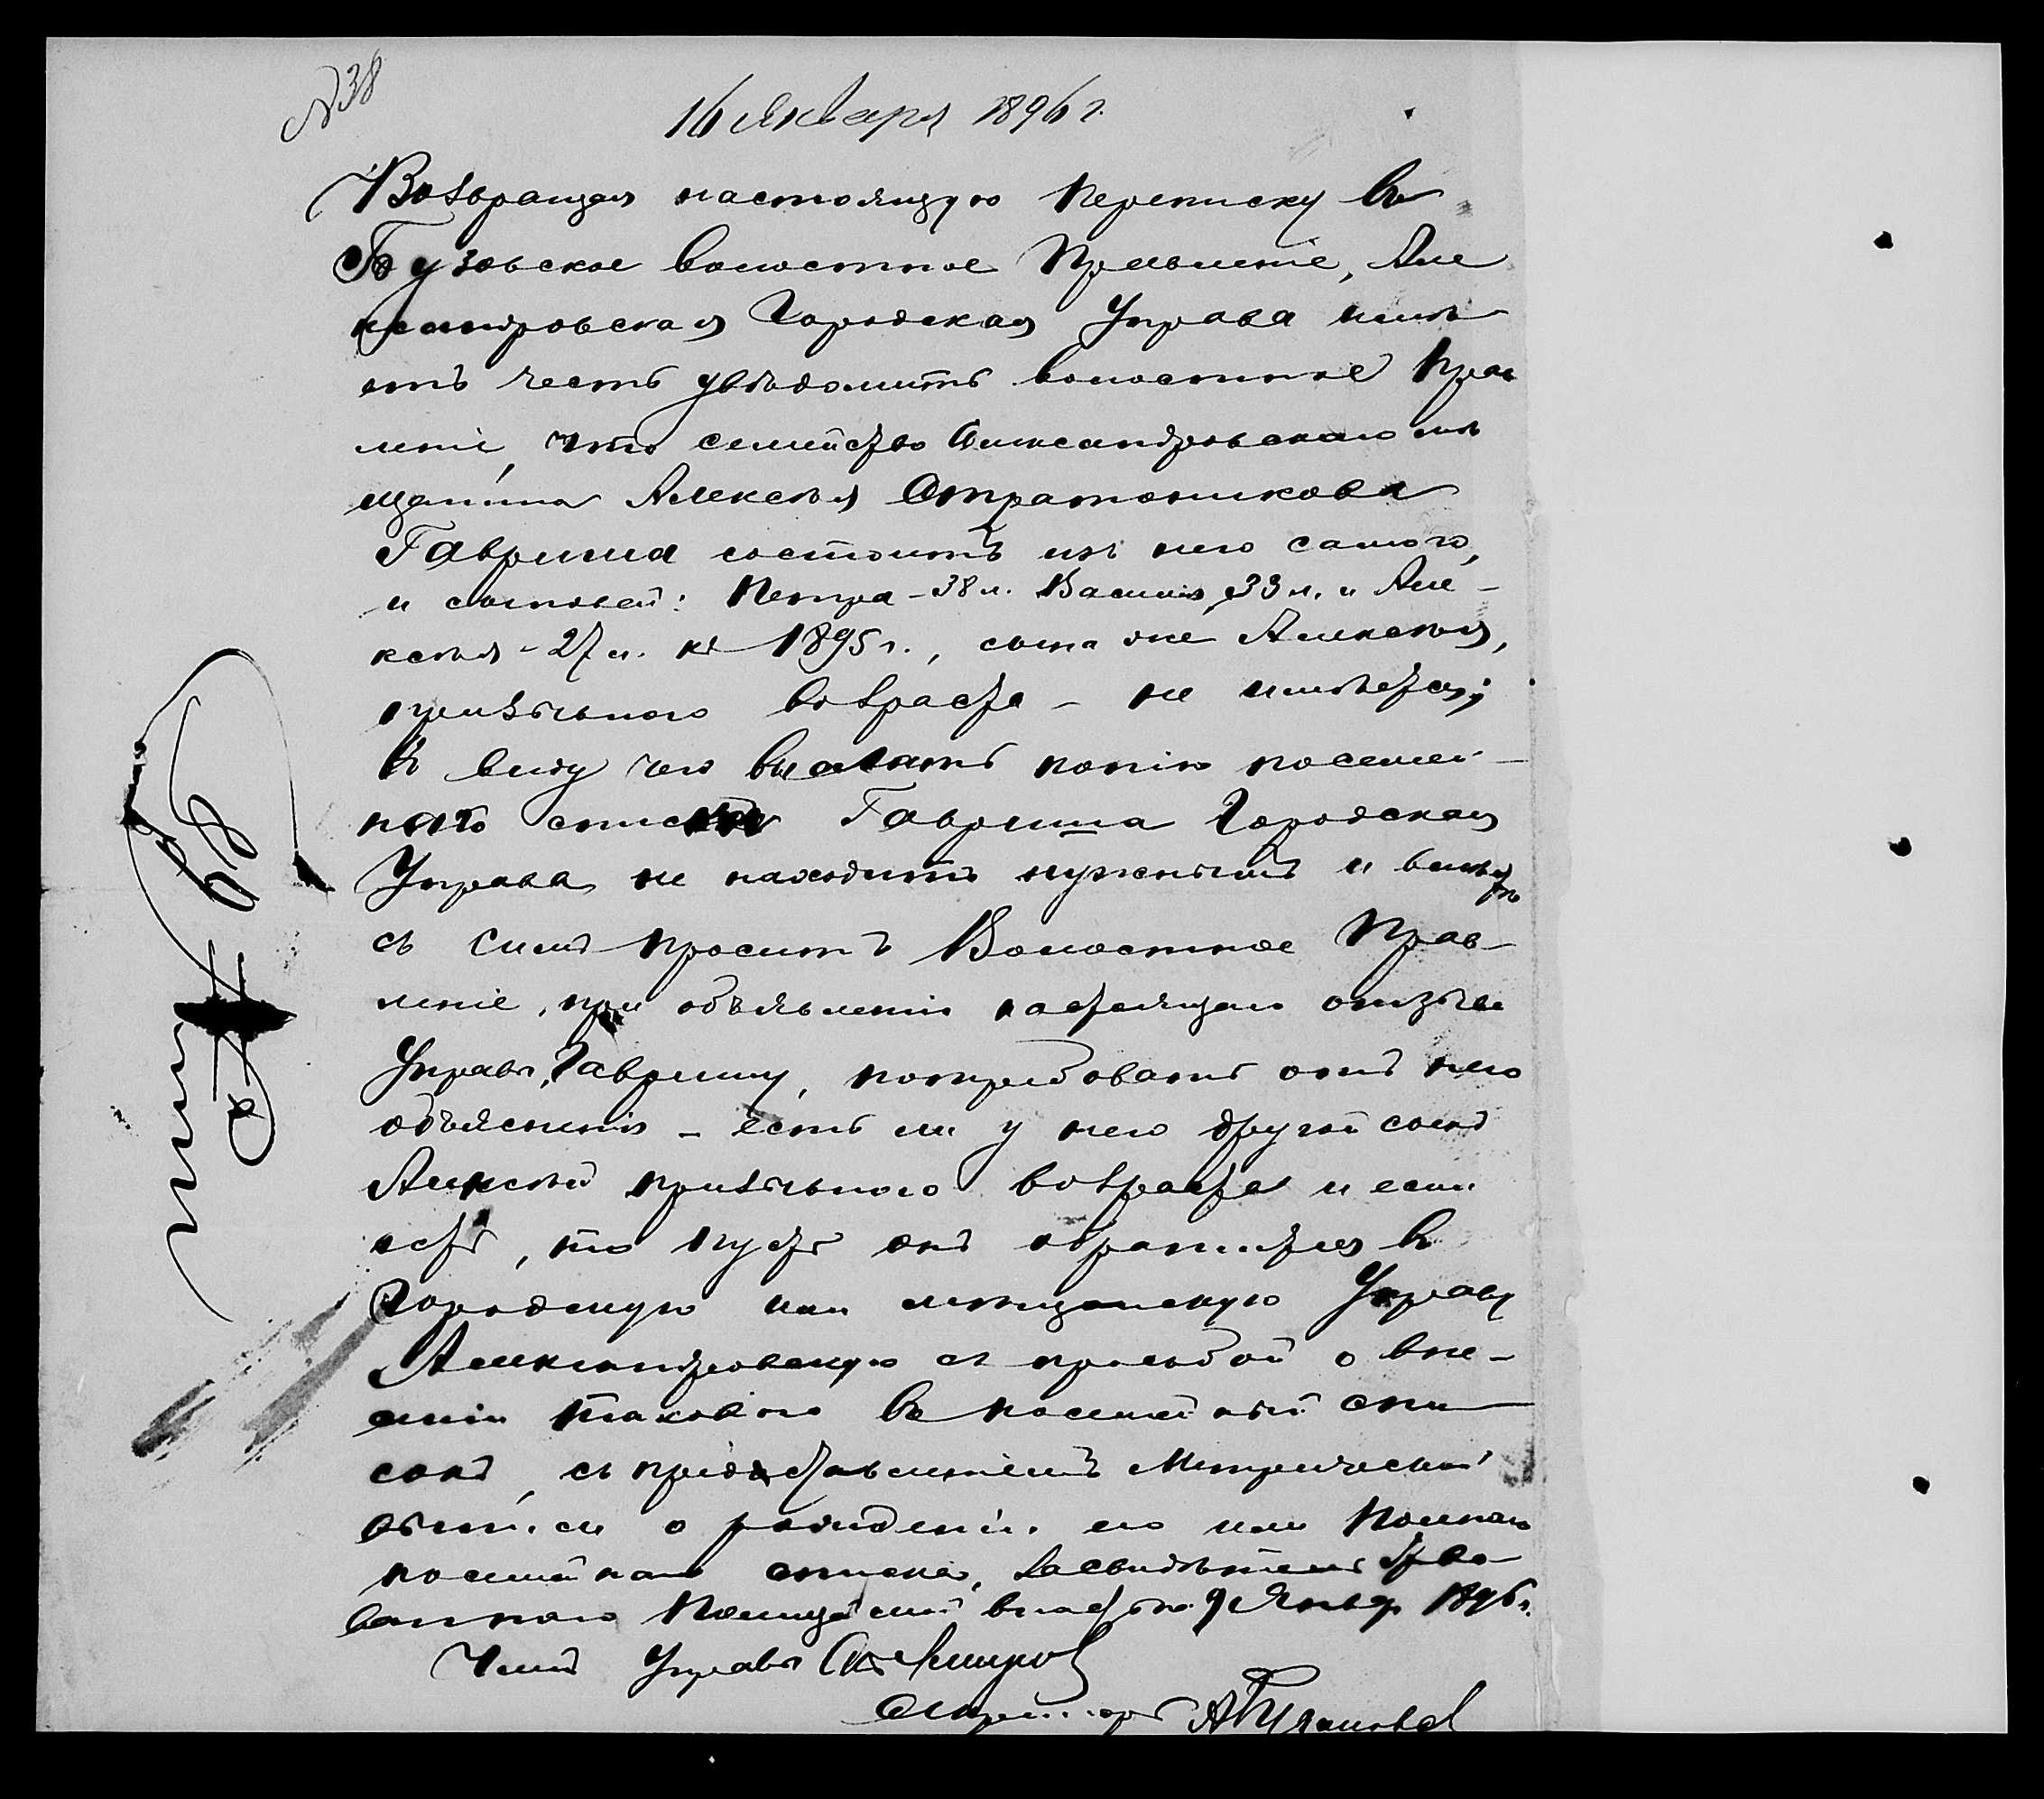 №38
16 Января 1896 г.
Возвращая настоящую переписку въ
Бузовское волостное Правленіе, Але
ксандровская Городская Управа имѣ
етъ честь увѣдомить волостное Прав
леніе, что семейство Александровскаго мѣ
щанина Алексѣя Стратоникова
Гавриша состоитъ изъ него самого,
и сыновей: Петра - 38 л. Василія 33 л. и Але-
ксѣя - 27 л. къ 1895 г., сына же Алексѣя,
призывного возраста - не имѣется;
въ виду чего высылать копію посемей-
наго списка Гавриша Городская
Управа не находитъ нужнымъ и вмѣстѣ
съ симъ проситъ Волостное Прав-
леніе, при объявленіи настоящаго отзыва
Управы, Гавришу, потребовать отъ него
объясненія - есть ли у него другой сынъ
Алексѣй призывного возраста и если
есть, то пусть онъ обратится въ
Городскую или мѣщанскую Управу
Александровскую съ просьбой о вне-
сеніи таковаго въ посемейный спи
сокъ, съ представленіемъ Метрической
выписи о рожденіи его или Полнаго
посемейнаго списка, засвидѣтельство
ваннаго Полицейской властью. 9 Январ 1896 г.
Членъ Управы
Секретарь
68